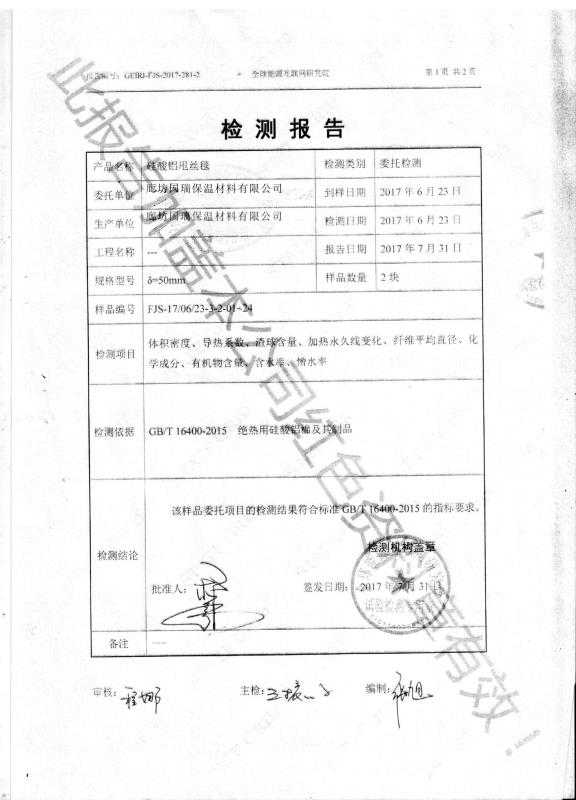 报告编号：GEIRI-FJS-2017-281-2 全球能源互联网研究院 第 1 页 共 2 页
检 测 报 告
产品名称 硅酸铝甩丝毯 检测类别 委托检测
委托单位 廊坊国瑞保温材料有限公司 到样日期 2017 年 6 月 23 日
生产单位 廊坊国瑞保温材料有限公司 检测日期 2017 年 6 月 23 日
工程名称 --- 报告日期 2017 年 7 月 31 日
规格型号 δ=50mm 样品数量 2 块
样品编号 FJS-17/06/23-3-2-01~24
检测项目 体积密度、导热系数、渣球含量、加热永久线变化、纤维平均直径、化
学成分、有机物含量、含水率、憎水率
检测依据 GB/T 16400-2015 绝热用硅酸铝棉及其制品
该样品委托项目的检测结果符合标准 GB/T 16400-2015 的指标要求。
检测结论
检测机构盖章
批准人： 签发日期： 2017 年 7 月 31 日
试验检测专用章
备注 ---
审核： 主检： 编制：
此报告加盖本公司红色资料章有效！